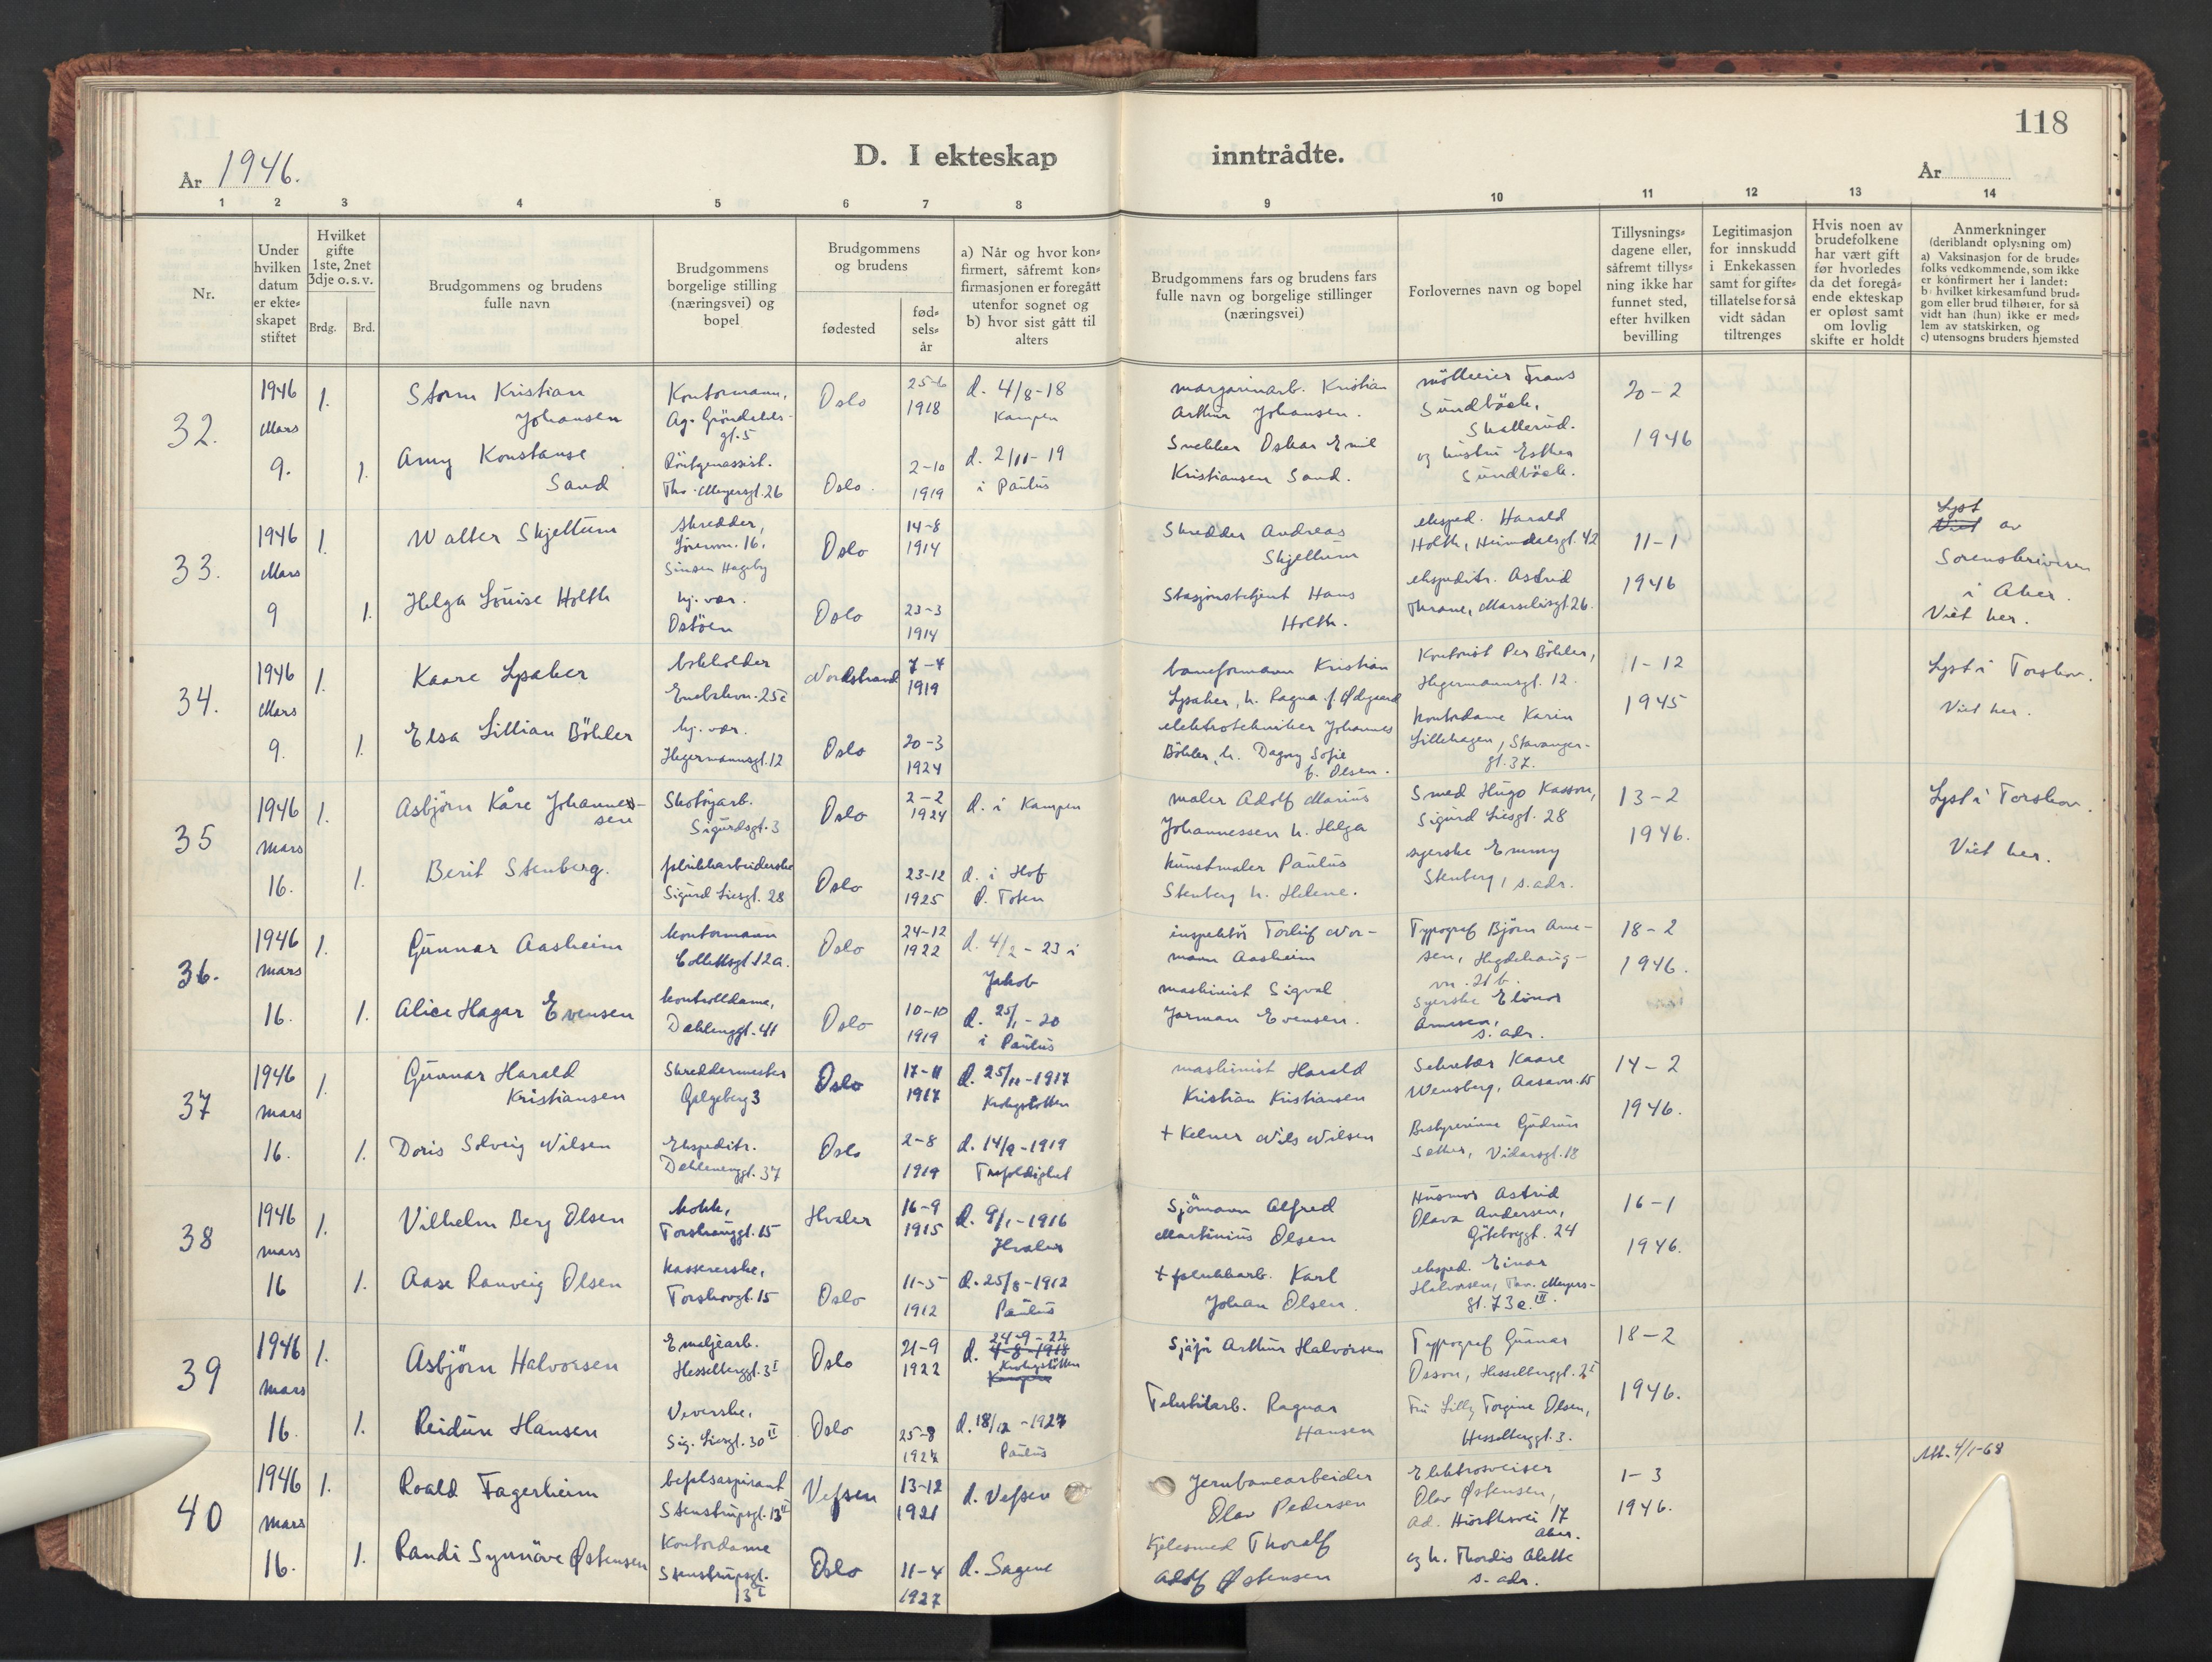 118
D. I ekteskap inntrådte.
År 1946.
År
1 2 3 4 5 6 7 8 9 10 11 12 13 14
Nr.
Under hvilken datum er ekteskapet stiftet
Hvilket gifte 1ste, 2net 3dje o. s. v.
Brdg. Brd.
Brudgommens og brudens fulle navn
Brudgommens borgelige stilling (næringsvei) og bopel
Brudgommens og brudens
fødested
fødselsår
a) Når og hvor konfirmert, såfremt konfirmasjonen er foregått utenfor sognet og b) hvor sist gått til alters
Brudgommens fars og brudens fars fulle navn og borgelige stillinger (næringsvei)
Forlovernes navn og bopel
Tillysningsdagene eller, såfremt tillysning ikke har funnet sted, efter hvilken bevilling
Legitimasjon for innskudd i Enkekassen samt for giftetillatelse for så vidt sådan tiltrenges
Hvis noen av brudefolkene har vært gift før hvorledes da det foregående ekteskap er opløst samt om lovlig skifte er holdt
Anmerkninger (deriblandt oplysning om) a) Vaksinasjon for de brudefolks vedkommende, som ikke er konfirmert her i landet: b) hvilket kirkesamfund brudgom eller brud tilhører, for så vidt han (hun) ikke er medlem av statskirken, og c) utensogns bruders hjemsted
32.
1946 Mars 9.
1.
Storm Kristian Johansen
Kontormann, Ag. Gröndahlsgt. 5
Oslo
25-6 1918
d. 4/8-18 Kampen
margarinarb. Kristian Arthur Johansen.
Frans Sundböck, Skallerud.
20-2 1946
1.
Amy Konstanse Sand
Röntgenassist. Thv. Meyersgt. 26
Oslo.
2-10 1919
d. 2/11-19 i Paulus
Snekker Oskar Emil Kristiansen Sand.
og hustru Esther Sundböck.
33.
1946 Mars 9
1.
Walter Skjellum
skredder, 16. Sinsen Hageby
Oslo
14-8 1914
Skredder Andreas Skjellum
eksped. Harald Holth, Heimdalsgt. 42
11-1 1946
Lyst av Sorenskriveren i Aker. Viet her.
1.
Helga Louise Holth
hj. vær. Ostöen
Oslo
23-3 1914
Stasjonsbetjent Hans Holth.
ekspeditr. Astrid Thrane, Marselisgt 26.
34.
1946 Mars 9.
1.
Kaare Lysaker
bokholder Enebakkvn. 25c
Nordstrand
7-4 1919
baneformann Kristian Lysaker, h. Ragna f. Ødegaard
Kontorist Per Böhler, Hegermannsgt. 12.
1-12 1945
Lyst i Torshov. Viet her.
1.
Elsa Lillian Böhler
hj. vær. Hegermannsgt. 12
Oslo
20-3 1924
elektrotekniker Johannes Böhler, h. Dagny Sofie f. Olsen.
kontordame Karin Lillehagen, Stavangergt. 37.
35
1946 mars 16.
1.
Asbjörn Kåre Johannessen
Skotöyarb. Sigurdsgt. 3
Oslo
2-2 1924
d. i Kampen
maler Adolf Marius Johannessen h. Helga
Smed Hugo Kasson, Sigurd Liesgt. 28
13-2 1946.
Lyst i Torshov. Viet her.
1.
Berit Stenberg.
fabrikkarbeiderske Sigurd Liesgt. 28
Oslo
23-12 1925
d. i Hof Ö. Toten
kunstmaler Paulus Stenberg h. Helene.
syerske Emmy Stenberg, s. adr.
36.
1946 mars 16.
1.
Gunnar Aasheim
kontormann Collettsgt. 12a.
Oslo
24-12 1922
d. 4/2-23 i Jakob
inspektör Torleif Normann Aasheim
Typograf Björn Arnesen, Hegdehaugvn. 21 b.
18-2 1946.
1.
Alice Hagar Evensen
kontrolldame, Dælenggt. 41
Oslo
10-10 1919
d. 25/1-20 i Paulus
maskinist Sigval Jarman Evensen.
Syerske Elinor Arnesen, s. adr.
37
1946 mars 16.
1.
Gunnar Harald Kristiansen
Skreddermester Galgeberg 3
Oslo
17-11 1917
d. 25/11-1917 Krohgstötten
maskinist Harald Kristian Kristiansen
Sekretær Kaare Wensberg, Aasavn. 15
14-2 1946.
1.
Doris Solveig Nilsen
Ekspeditr. Dælenenggt. 37
Oslo
2-8 1919
d. 14/9-1919 Trefoldighet
+ Kelner Nils Nilsen
Bestyrerinne Gudrun Sether, Vidarsgt. 18
38
1946 mars 16
1.
Vilhelm Berg Olsen
kokk, Torshauggt. 15
Hvaler
16-9 1915
d. 9/1-1916 Hvaler
Sjömann Alfred Martinius Olsen
Husmor Astrid Olava Andersen, Göteborggt. 24
16-1 1946.
1.
Aase Ranveig Olsen
kassererske, Torshovgt. 15
Oslo
11-5 1912
d. 25/8-1912 Paulus
+ fabrikkarb. Karl Johan Olsen.
eksped. Einar Halvorsen, Thv. Meyersgt. 73 e. III.
39
1946 mars 16.
1.
Asbjörn Halvorsen
Emaljearb. Hesselberggt. 3 I
Oslo
21-9 1922
d. 24-9-22 Krohgstötten
Sjåför Arthur Halvorsen
Typograf Gunnar Osson, Hesselberggt. 2 I
18-2 1946.
1.
Reidun Hansen
Veverske, Sig. Liesgt. 30 II
Oslo
25-8 1927
d. 18/12-1927 Paulus
Tekstilarb. Ragnar Hansen
Fru Lilly Torgine Olsen, Hesselberggt. 3.
40
1946 mars 16.
1.
Roald Fagerheim
befalsaspirant Stenstrupsgt. 13 II
Vefsen
13-12 1921
d. Vefsen
Jernbanearbeider Olav Pedersen
Elektrosveiser Olav Østensen, Ad. Hiorthsvei 17 Aker.
1-3 1946.
Att. 4/1-68
1.
Randi Synnöve Østensen
Kontordame Stenstrupsgt. 13 I
Oslo
11-4 1927
d. Sagene
Kjelesmed Thoralf Adolf Østensen
og h. Thordis Alette s. adr.